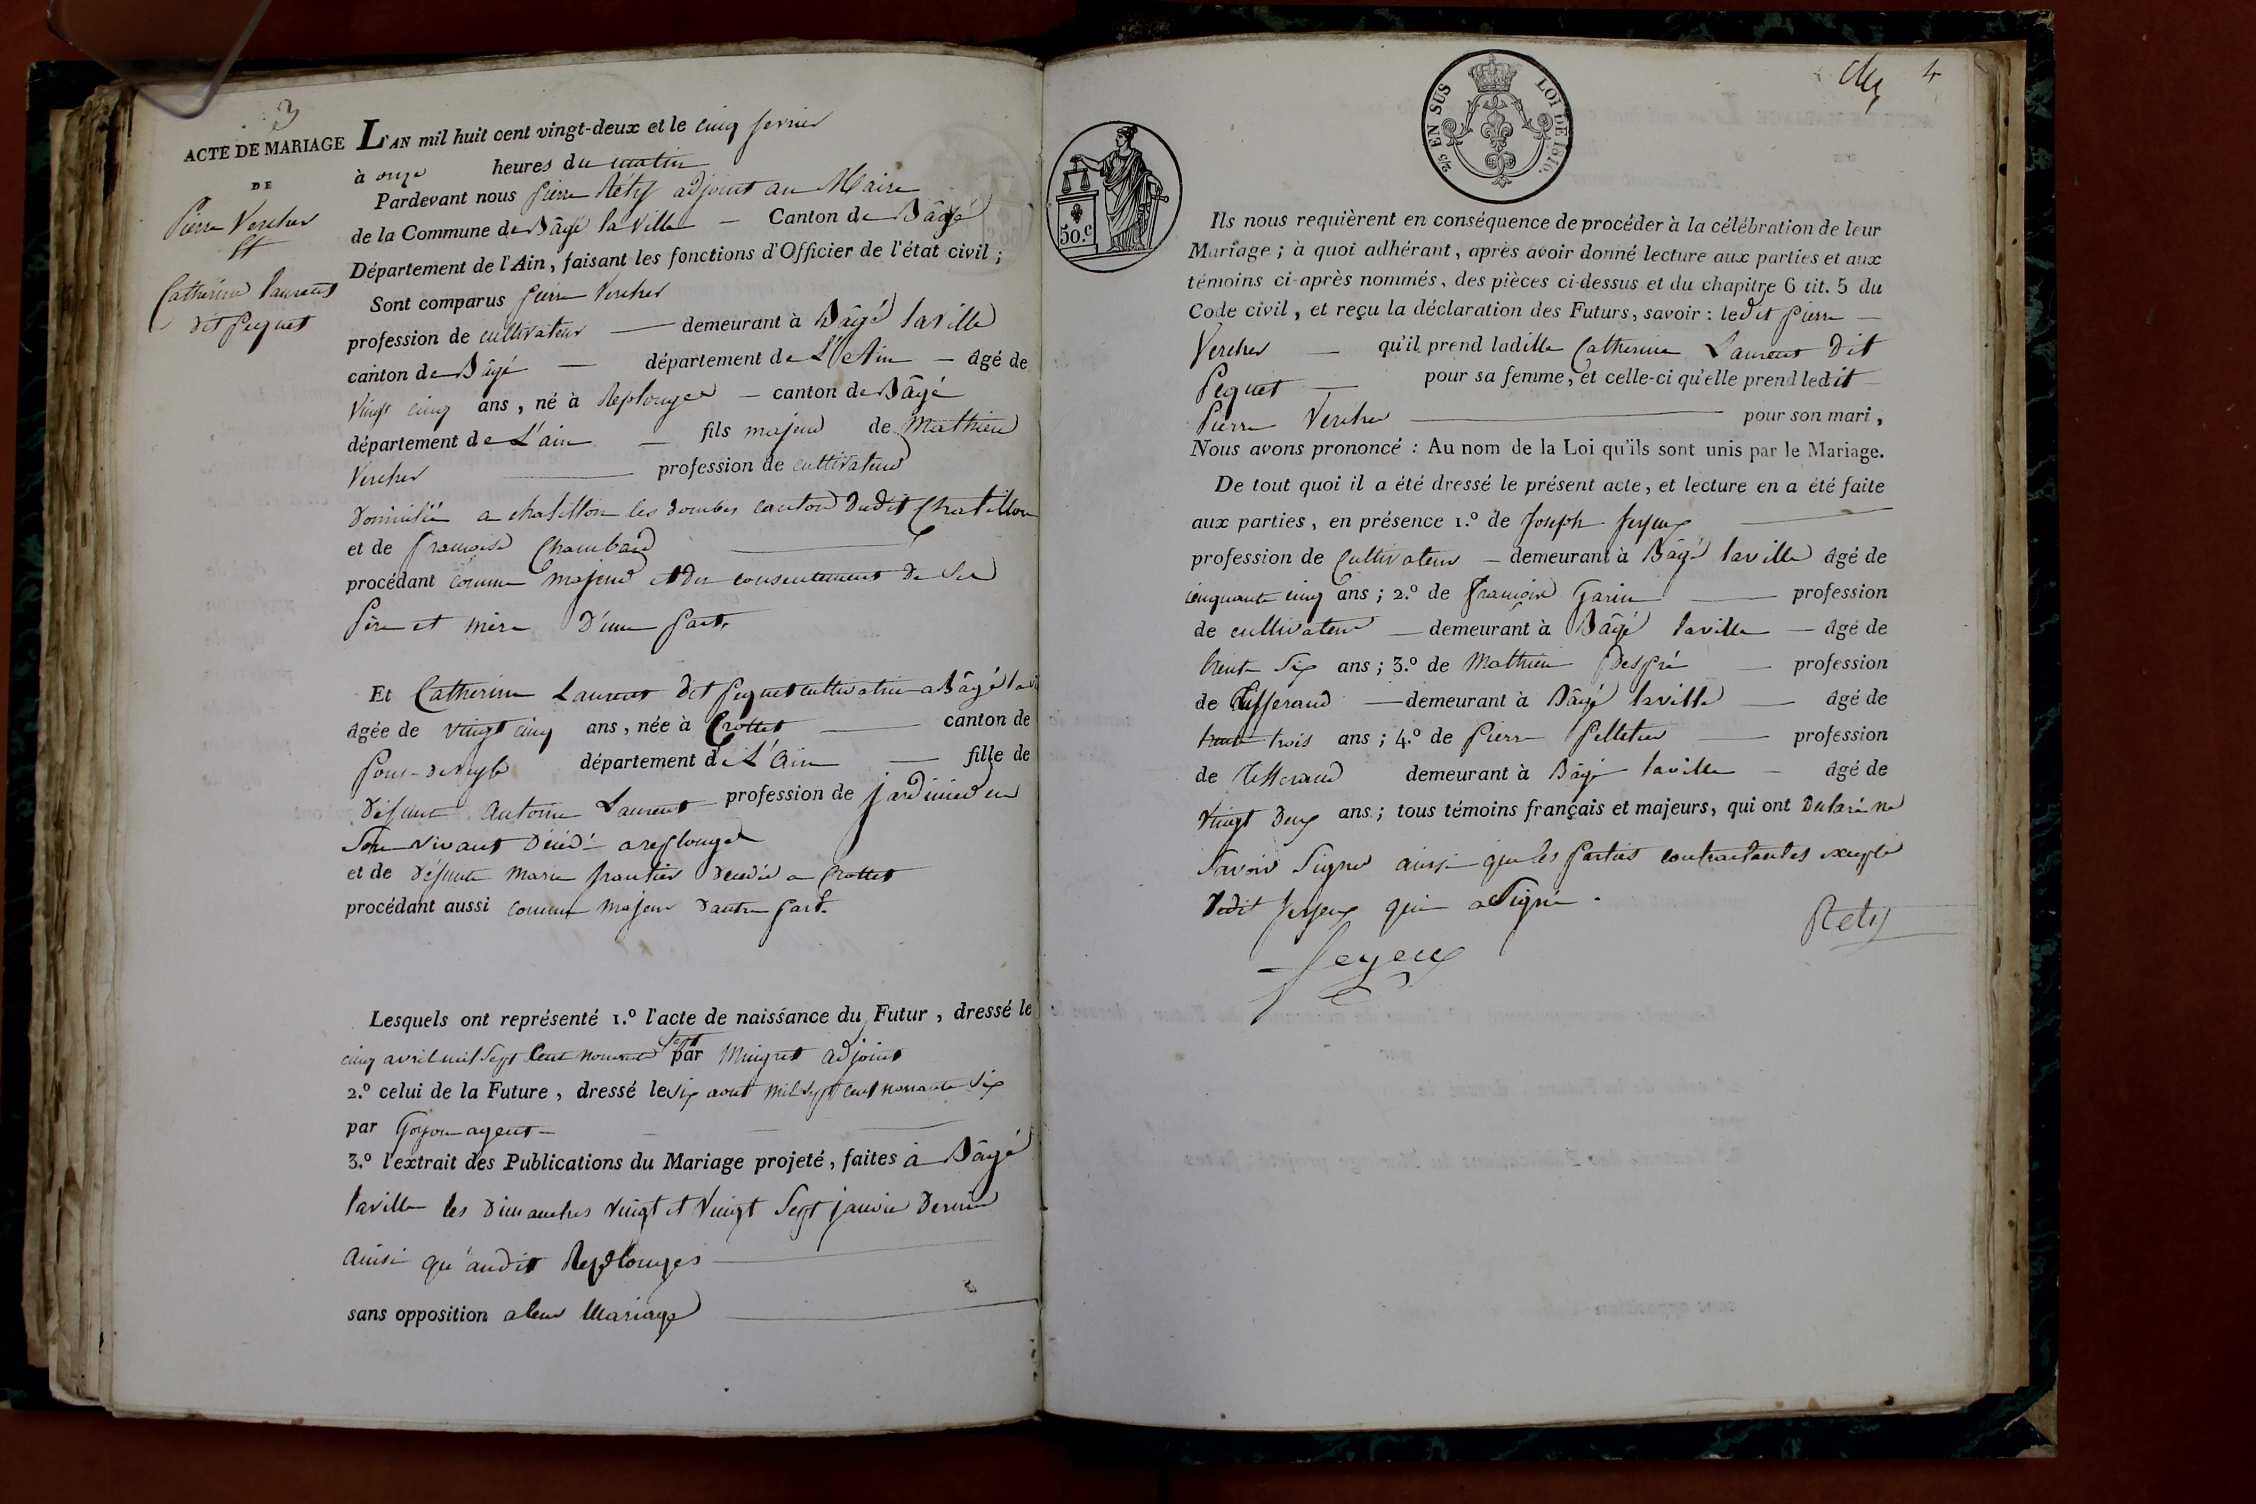 3
ACTE DE MARIAGE
DE
Pierre Vercher
Et
Catherine Laurent
dit Pequet
L'AN mil huit cent vingt-deux et le cinq fevrier
à onze heures du matin
Pardevant nous pierre Réty adjoint au Maire
de la Commune de Bâgé la ville — Canton de Bâgé
Département de l'Ain, faisant les fonctions d'Officier de l'état civil ;
Sont comparus pierre Vercher
profession de cultivateur — demeurant à Bâgé laville
canton de Bâgé — département de L'Ain — âgé de
vingt cinq ans, né à Replonges — canton de Bâgé
département de L'ain — fils majeur de Mathieu
Vercher — profession de cultivateur
domicilié a chatillon les dombes canton dudit Chatillon
et de francoise Chambard
procédant comme majeur et du consentement de ses
père et mère D'une part.
Et Catherine Laurent dit pequet cultivatrice a Bâgé la vi
âgée de vingt cinq ans, née à Crottet — canton de
pont-deveyle département de L'Ain — fille de
défunt Antoine Laurent profession de jardinier en
son vivant décédé a replonges
et de défunte marie decedée a Crottet
procédant aussi comme majeur d'autre part.
Lesquels ont représenté 1.º l'acte de naissance du Futur, dressé le
sept
cinq avril mil sept cent nonante par Mingret adjoint
2.º celui de la Future, dressé le six aout mil sept cent nonante six
par Goyon agent —
3.º l'extrait des Publications du Mariage projeté, faites à Bâgé
laville les dimanches vingt et vingt sept janvier dernier
ainsi qu'audit Replonges
sans opposition a leur Mariage
4
25 EN SUS LOI DE 1816.
50.c
Ils nous requièrent en conséquence de procéder à la célébration de leur
Mariage ; à quoi adhérant, après avoir donné lecture aux parties et aux
témoins ci-après nommés, des pièces ci-dessus et du chapitre 6 tit. 5 du
Code civil, et reçu la déclaration des Futurs, savoir : ledit pierre —
Vercher — qu'il prend ladille Catherine Laurent dit
Pequet — pour sa femme, et celle-ci qu'elle prend ledit —
Pierre Vercher — pour son mari,
Nous avons prononcé : Au nom de la Loi qu'ils sont unis par le Mariage.
De tout quoi il a été dressé le présent acte, et lecture en a été faite
aux parties, en présence 1.º de Joseph feyeux
profession de Cultivateur — demeurant à Bâgé laville âgé de
cinquante cinq ans ; 2.º de francois Garin — profession
de cultivateur — demeurant à Bâgé laville — âgé de
trente six ans ; 3.º de Mathieu Despré — profession
de Tisserand — demeurant à Bâgé laville — âgé de
trente trois ans ; 4.º de pierre pelletier — profession
de Tisserand demeurant à Bâgé laville — âgé de
vingt deux ans ; tous témoins français et majeurs, qui ont declaré ne
savoir signer ainsi que les parties contractantes excepté
ledit feyeux qui a signé.
feyeux
Rety